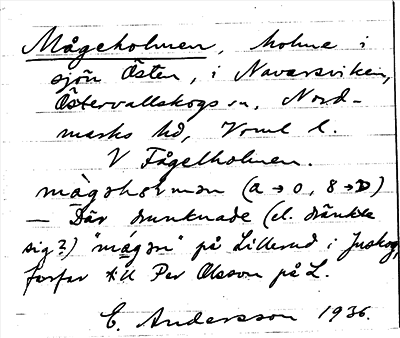 Mågeholmen, holme i
sjön Östen, i Navarsviken,
Östervallskogs sn, Nord-
marks hd, Vrml l.
V Fågelholmen.
(a → o, 8 → D)
— Där drunknade (el. dränkte
sig?) "mågen" på Lillerud i Juskog,
farfar till Per Olsson på L.
E. Andersson 1936.